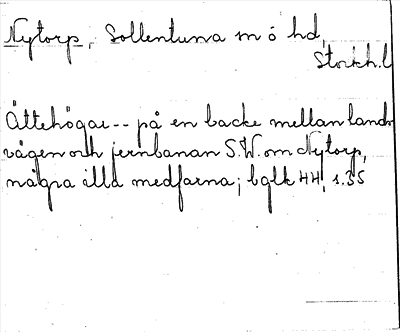 Nytorp, Sollentuna sn ö hd,
Stockh.l
Ättehögar -- på en backe mellan lands
vägen och jernbanan S.W. om Nytorp,
några illa medfarna; bglk 44, s.35